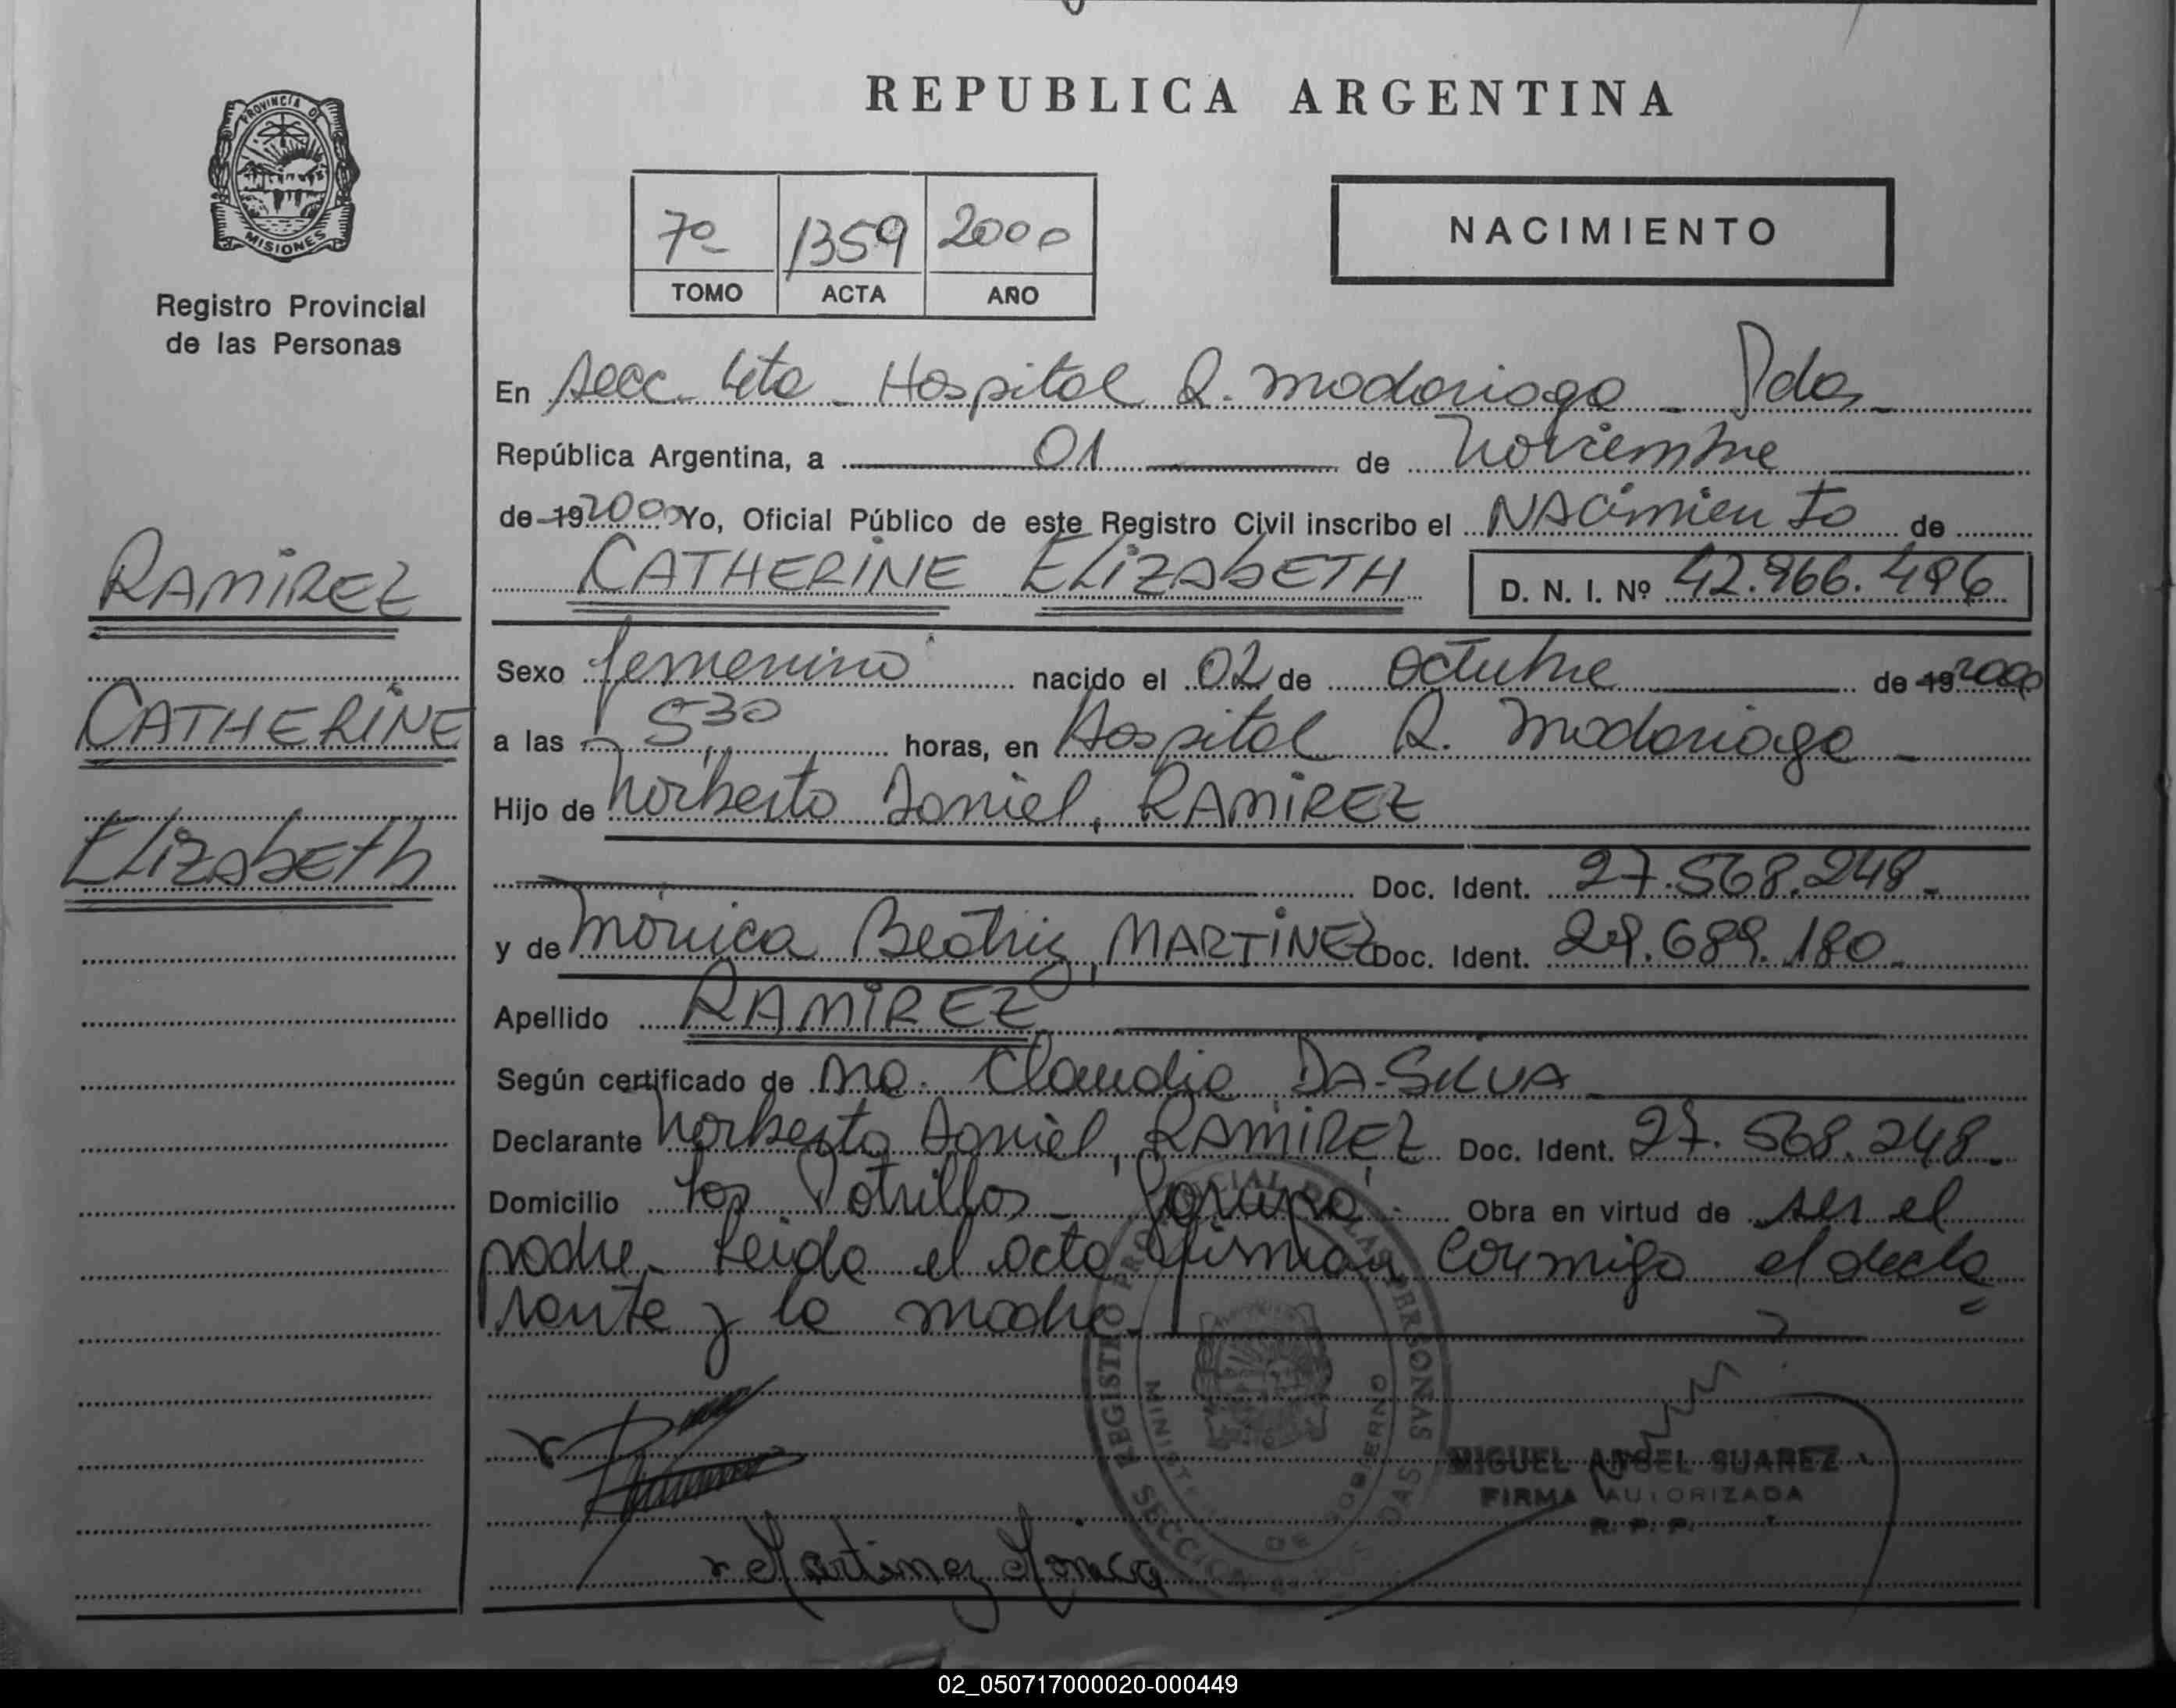 REPUBLICA ARGENTINA
PROVINCIA DE
MISIONES
Registro Provincial
de las Personas
7º 1359 2000
TOMO ACTA AÑO
NACIMIENTO
En Secc. 4ta - Hospital R. Madariaga - Pdas -
República Argentina, a 01 de Noviembre
de 19 2000 Yo, Oficial Público de este Registro Civil inscribo el NACimienTo de
CATHERINE ELIZABETH D. N. I. Nº 42.966.496
RAMIREZ
CATHERINE
ELIZABETh
Sexo femenino nacido el 02 de octubre de 19 2000
a las 5 30 horas, en Hospital R. Madariaga -
Hijo de Norberto Daniel, RAMIREZ
Doc. Ident. 27.568.248.-
y de Mónica Beatriz, MARTINEZ Doc. Ident. 29.689.180.-
Apellido RAMIREZ
Según certificado de Ma. Claudia DA-SILVA
Declarante Norberto Daniel, RAMIREZ Doc. Ident. 27.568.248.-
Domicilio Los Potrillos - Garupá - Obra en virtud de ser el
padre. Leida el acta firman conmigo el decla
rante y la madre.-
REGISTRO PROVINCIAL DE LAS PERSONAS
MINISTERIO DE GOBIERNO
SECCION
MIGUEL ANGEL SUAREZ
FIRMA AUTORIZADA
R. P. P.
Martinez Monica
02_050717000020-000449